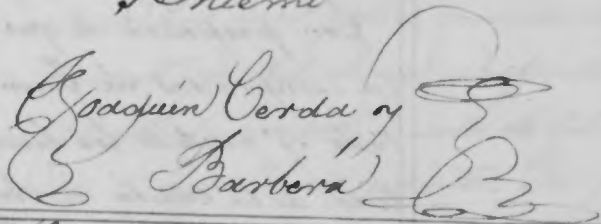 Joaquín Cerdá y
Barberá